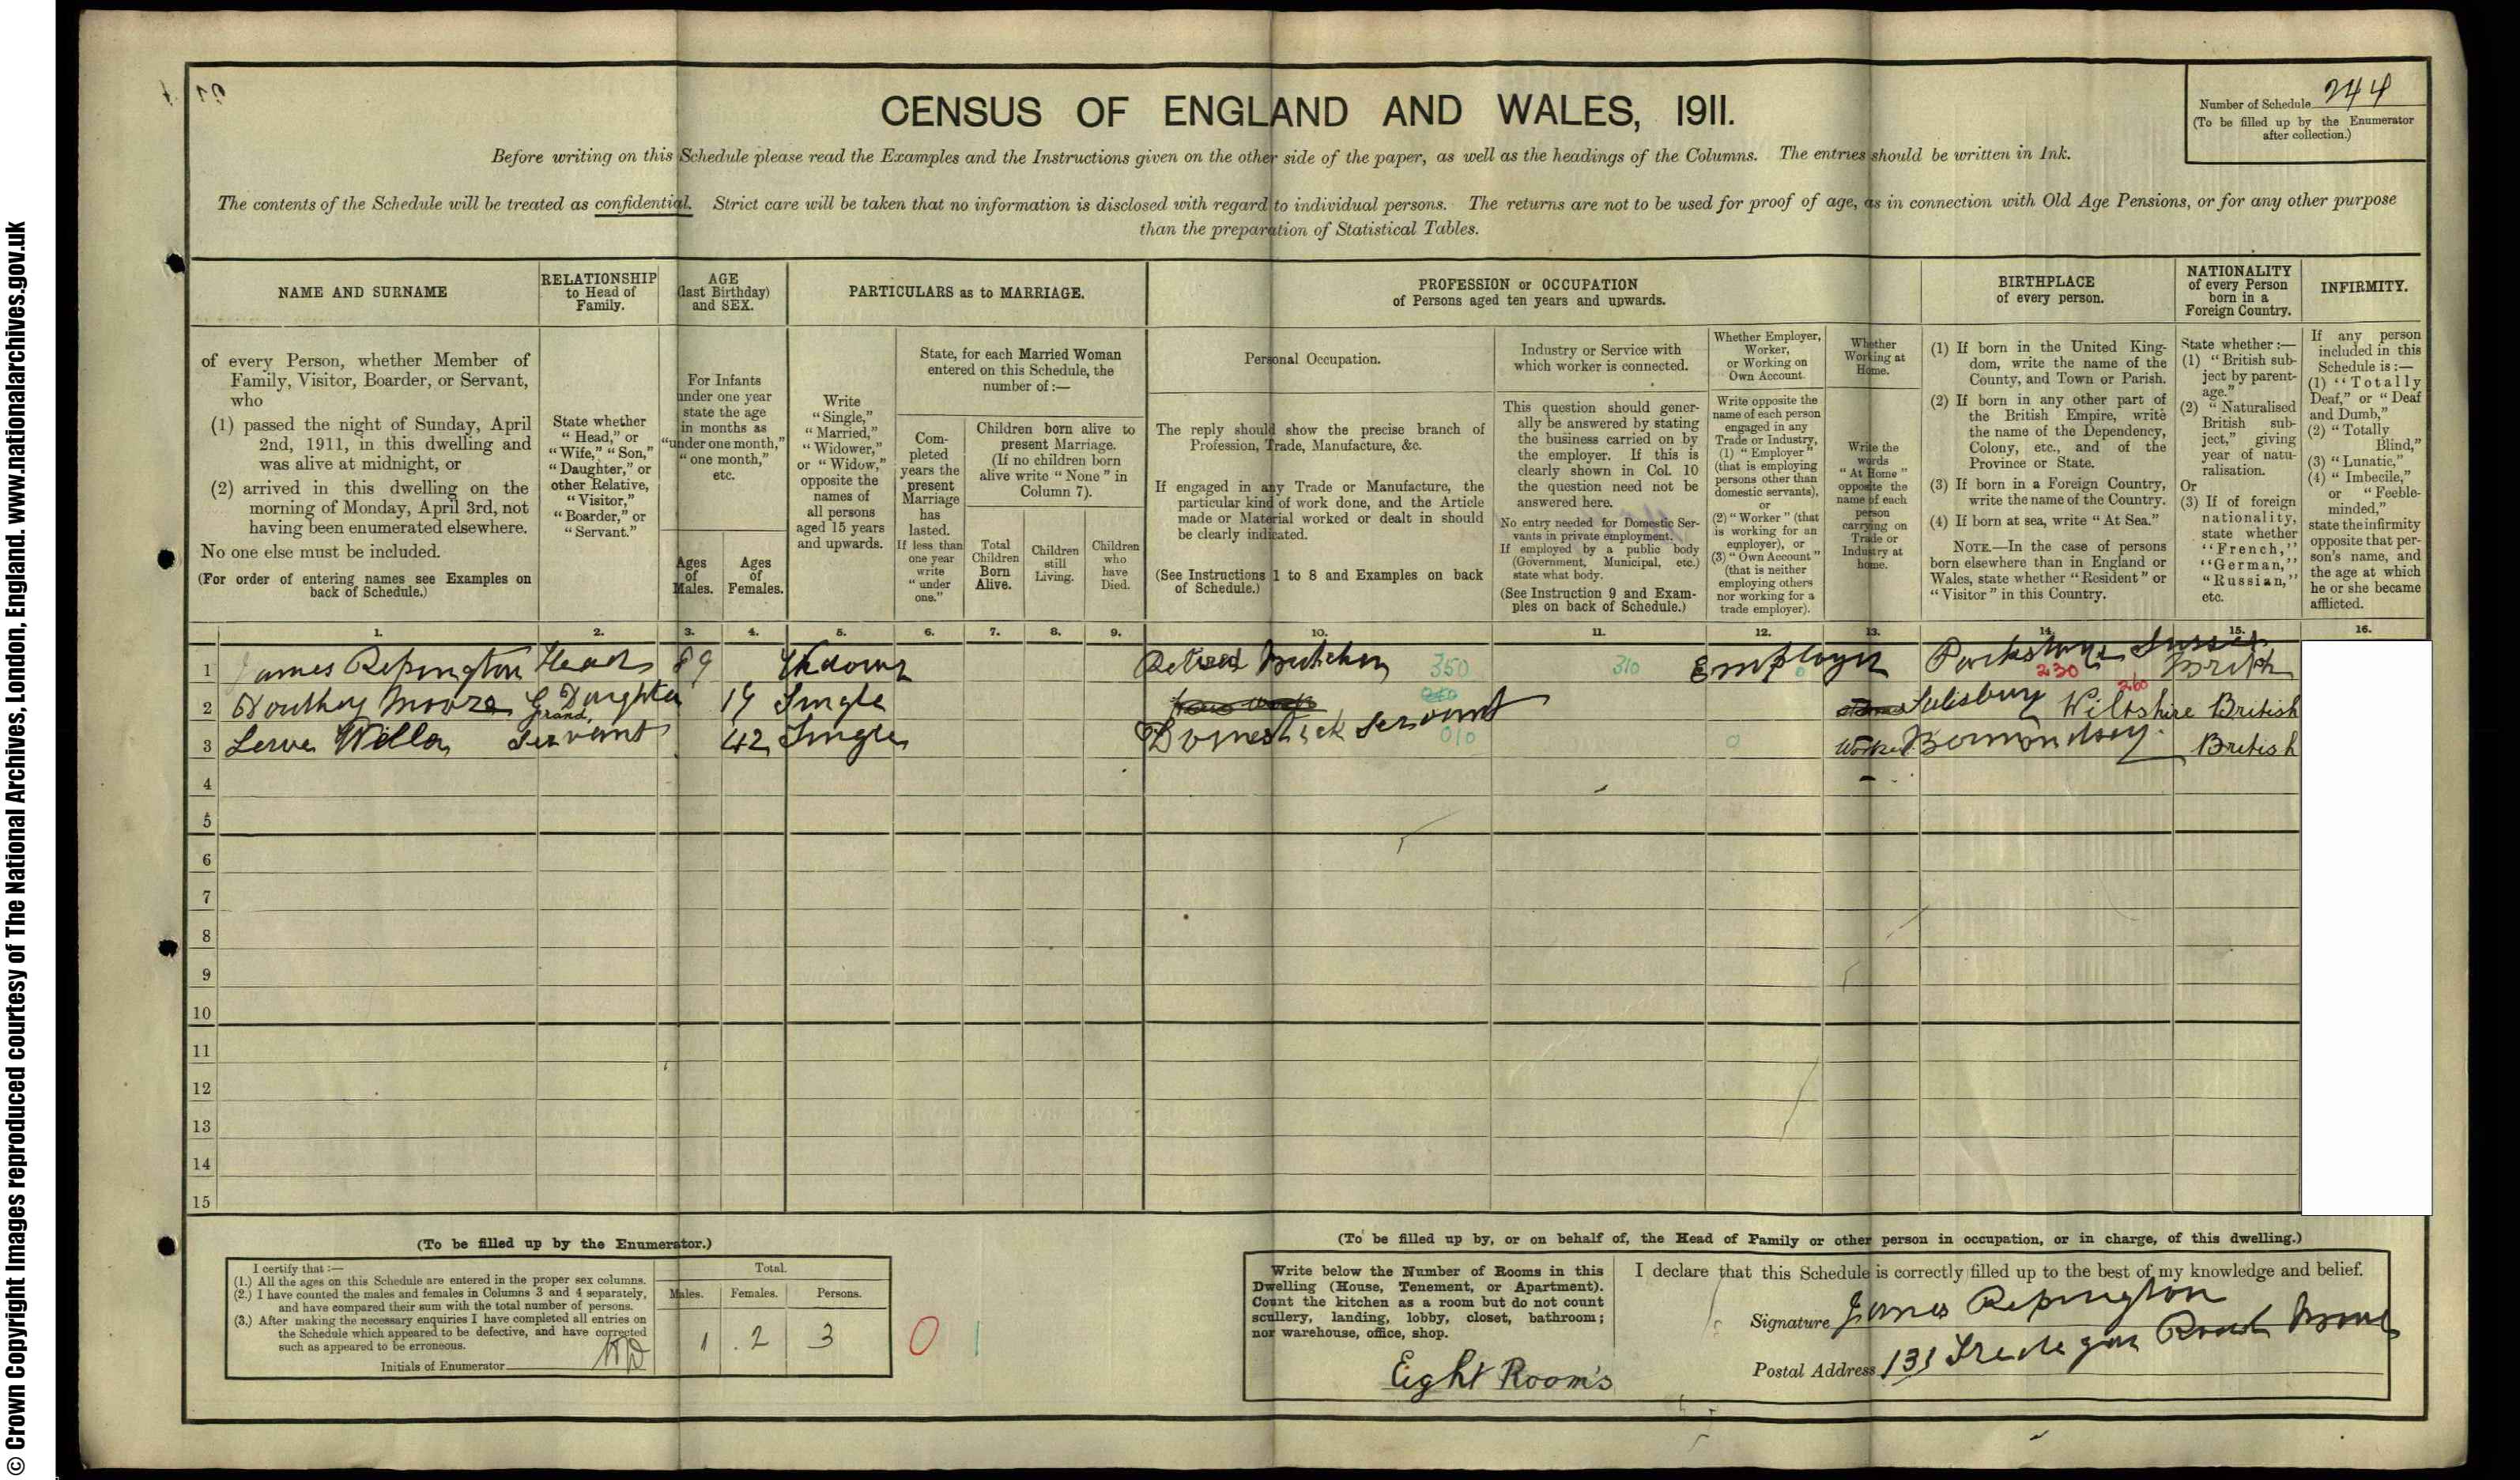 © Crown Copyright Images reproduced courtesy of The National Archives, London, England. www.nationalarchives.gov.uk
CENSUS OF ENGLAND AND WALES, 1911.
Number of Schedule 244
(To be filled up by the Enumerator
after collection.)
Before writing on this Schedule please read the Examples and the Instructions given on the other side of the paper, as well as the headings of the Columns. The entries should be written in Ink.
The contents of the Schedule will be treated as confidential. Strict care will be taken that no information is disclosed with regard to individual persons. The returns are not to be used for proof of age, as in connection with Old Age Pensions, or for any other purpose
than the preparation of Statistical Tables.
NAME AND SURNAME
of every Person, whether Member of
Family, Visitor, Boarder, or Servant,
who
(1) passed the night of Sunday, April
2nd, 1911, in this dwelling and
was alive at midnight, or
(2) arrived in this dwelling on the
morning of Monday, April 3rd, not
having been enumerated elsewhere.
No one else must be included.
(For order of entering names see Examples on
back of Schedule.)
RELATIONSHIP
to Head of
Family.
State whether
"Head," or
"Wife," "Son,"
"Daughter," or
other Relative,
"Visitor,"
"Boarder," or
"Servant."
AGE
(last Birthday)
and SEX.
For Infants
under one year
state the age
in months as
"under one month,"
"one month,"
etc.
Ages
of
Males.
Ages
of
Females.
PARTICULARS as to MARRIAGE.
Write
"Single,"
"Married,"
"Widower,"
or "Widow,"
opposite the
names of
all persons
aged 15 years
and upwards.
State, for each Married Woman
entered on this Schedule, the
number of :—
Com-
pleted
years the
present
Marriage
has
lasted.
If less than
one year
write
"under
one."
Children born alive to
present Marriage.
(If no children born
alive write "None" in
Column 7).
Total
Children
Born
Alive.
Children
still
Living.
Children
who
have
Died.
PROFESSION or OCCUPATION
of Persons aged ten years and upwards.
Personal Occupation.
The reply should show the precise branch of
Profession, Trade, Manufacture, &c.
If engaged in any Trade or Manufacture, the
particular kind of work done, and the Article
made or Material worked or dealt in should
be clearly indicated.
(See Instructions 1 to 8 and Examples on back
of Schedule.)
Industry or Service with
which worker is connected.
This question should gener-
ally be answered by stating
the business carried on by
the employer. If this is
clearly shown in Col. 10
the question need not be
answered here.
No entry needed for Domestic Ser-
vants in private employment.
If employed by a public body
(Government, Municipal, etc.)
state what body.
(See Instruction 9 and Exam-
ples on back of Schedule.)
Whether Employer,
Worker,
or Working on
Own Account.
Write opposite the
name of each person
engaged in any
Trade or Industry,
(1) "Employer"
(that is employing
persons other than
domestic servants),
or
(2) "Worker" (that
is working for an
employer), or
(3) "Own Account"
(that is neither
employing others
nor working for a
trade employer).
Whether
Working at
Home.
Write the
words
"At Home"
opposite the
name of each
person
carrying on
Trade or
Industry at
home.
BIRTHPLACE
of every person.
(1) If born in the United King-
dom, write the name of the
County, and Town or Parish.
(2) If born in any other part of
the British Empire, write
the name of the Dependency,
Colony, etc., and of the
Province or State.
(3) If born in a Foreign Country,
write the name of the Country.
(4) If born at sea, write "At Sea."
NOTE.—In the case of persons
born elsewhere than in England or
Wales, state whether "Resident" or
"Visitor" in this Country.
NATIONALITY
of every Person
born in a
Foreign Country.
State whether :—
(1) "British sub-
ject by parent-
age."
(2) "Naturalised
British sub-
ject," giving
year of natu-
ralisation.
Or
(3) If of foreign
nationality,
state whether
"French,"
"German,"
"Russian,"
etc.
INFIRMITY.
If any person
included in this
Schedule is :—
(1) "Totally
Deaf," or "Deaf
and Dumb,"
(2) "Totally
Blind,"
(3) "Lunatic,"
(4) "Imbecile,"
or "Feeble-
minded,"
state the infirmity
opposite that per-
son's name, and
the age at which
he or she became
afflicted.
1. 2. 3. 4. 5. 6. 7. 8. 9. 10. 11. 12. 13. 14. 15. 16.
1 James Repington Head 89 Retired Butcher 350 310 Employer 0 Sussex 230 British
2 Moore G Daughter Grand 19 Single Salisbury Wiltshire 260 British
3 Servant 42 Single Domestick Servant 010 0 Worker Bermondsey British
4
5
6
7
8
9
10
11
12
13
14
15
(To be filled up by the Enumerator.)
I certify that :—
(1.) All the ages on this Schedule are entered in the proper sex columns.
(2.) I have counted the males and females in Columns 3 and 4 separately,
and have compared their sum with the total number of persons.
(3.) After making the necessary enquiries I have completed all entries on
the Schedule which appeared to be defective, and have corrected
such as appeared to be erroneous.
Initials of Enumerator
Total.
Males. Females. Persons.
1 2 3
0 1
(To be filled up by, or on behalf of, the Head of Family or other person in occupation, or in charge, of this dwelling.)
Write below the Number of Rooms in this
Dwelling (House, Tenement, or Apartment).
Count the kitchen as a room but do not count
scullery, landing, lobby, closet, bathroom;
nor warehouse, office, shop.
Eight Room's
I declare that this Schedule is correctly filled up to the best of my knowledge and belief.
Signature James Repington
Postal Address 131 Tredegar Road